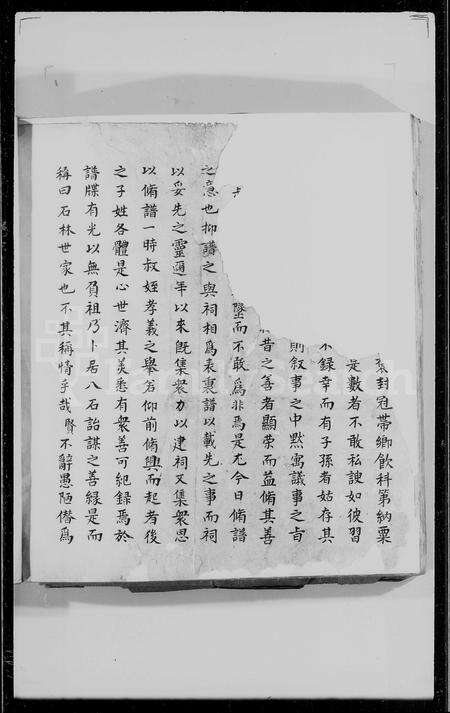 封冠帶鄉飲科第納粟
是數者不敢私諛如彼習
不錄幸而有子孫者姑存其
則敘事之中默寓議事之旨
昔之善者顯荣而益脩其善
墜而不敢為非焉是尤今日脩譜
之意也抑譜之與祠相為表裏譜以載先之事而祠
以妥先之靈邇年以來既集衆力以建祠又集衆思
以脩譜一時叔姪孝義之舉若仰前脩興而起者後
之子姓各體是心世濟其美悉有衆善可紀録焉於
譜牒有光以無負祖乃卜居八石詒謀之善緣是而
稱曰石林世家也不其稱情乎哉賢不辭愚陋僭為